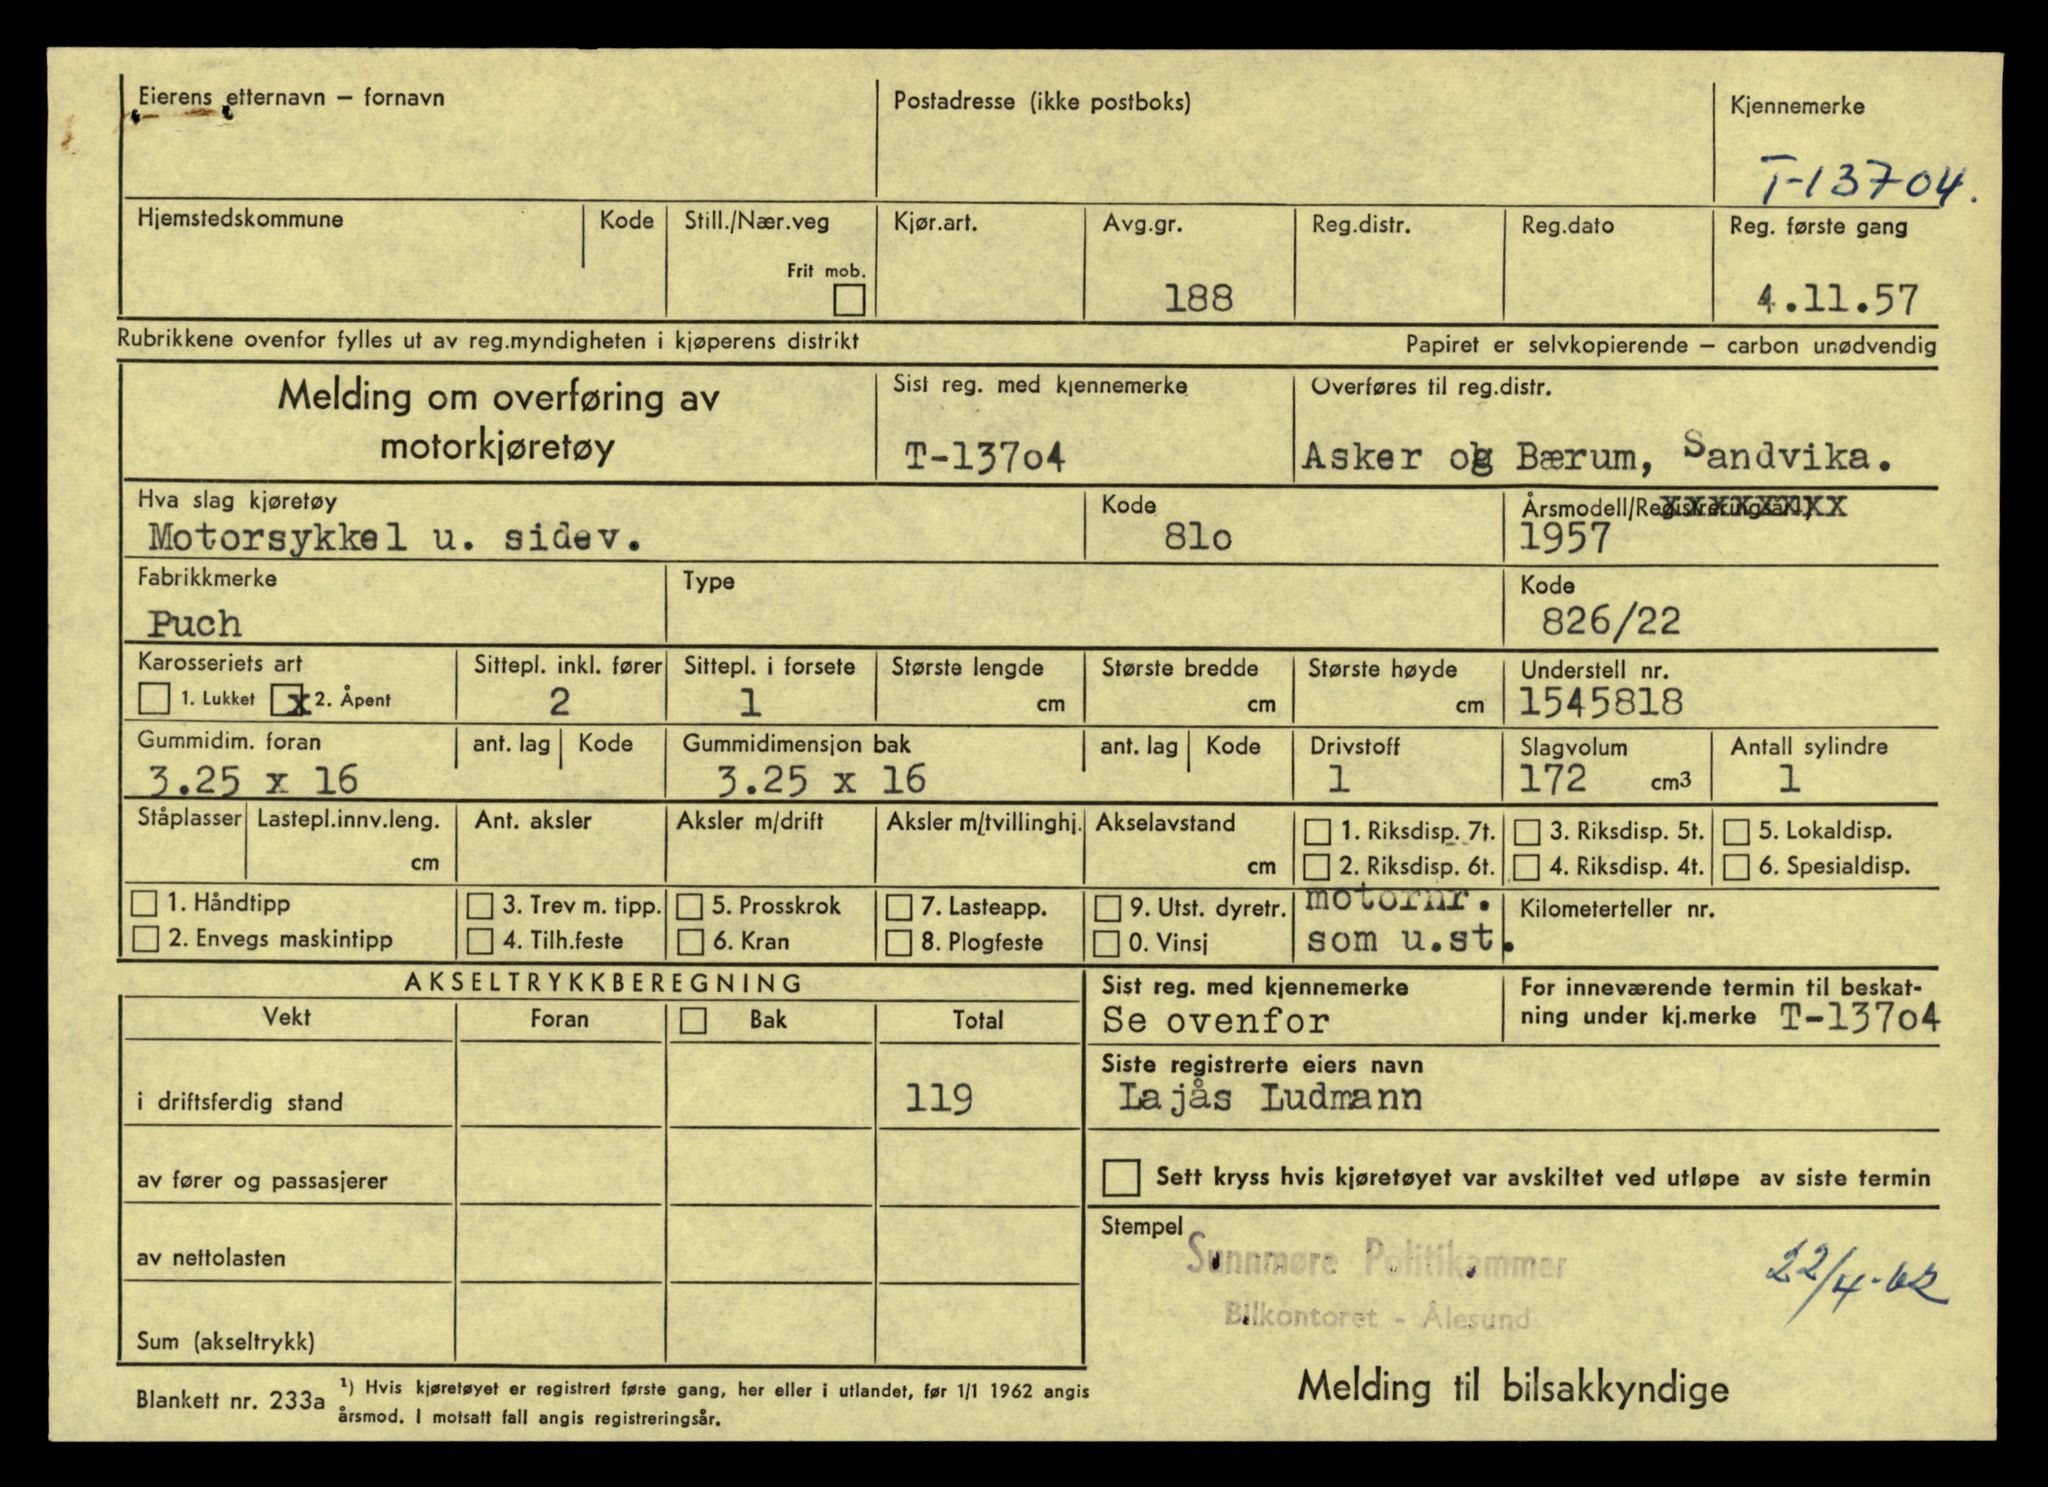 Eierens etternavn – fornavn
Postadresse (ikke postboks)
Kjennemerke
T-13704.
Hjemstedskommune
Kode
Still./Nær.veg
Frit mob.
Kjør.art.
Avg.gr.
188
Reg.distr.
Reg.dato
Reg. første gang
4.11.57
Rubrikkene ovenfor fylles ut av reg.myndigheten i kjøperens distrikt
Papiret er selvkopierende – carbon unødvendig
Melding om overføring av
motorkjøretøy
Sist reg. med kjennemerke
T-137o4
Overføres til reg.distr.
Asker og Bærum, Sandvika.
Hva slag kjøretøy
Motorsykkel u. sidev.
Kode
81o
Årsmodell/Registreringsår1)
1957
Fabrikkmerke
Puch
Type
Kode
826/22
Karosseriets art
1. Lukket x 2. Åpent
Sittepl. inkl. fører
2
Sittepl. i forsete
1
Største lengde
cm
Største bredde
cm
Største høyde
cm
Understell nr.
1545818
Gummidim. foran
3.25 x 16
ant. lag
Kode
Gummidimensjon bak
3.25 x 16
ant. lag
Kode
Drivstoff
1
Slagvolum
172 cm3
Antall sylindre
1
Ståplasser
Lastepl.innv.leng.
cm
Ant. aksler
Aksler m/drift
Aksler m/tvillinghj.
Akselavstand
cm
1. Riksdisp. 7t.
2. Riksdisp. 6t.
3. Riksdisp. 5t.
4. Riksdisp. 4t.
5. Lokaldisp.
6. Spesialdisp.
1. Håndtipp
2. Envegs maskintipp
3. Trev m. tipp.
4. Tilh.feste
5. Prosskrok
6. Kran
7. Lasteapp.
8. Plogfeste
9. Utst. dyretr.
0. Vinsj
motornr.
som u.st.
Kilometerteller nr.
AKSELTRYKKBEREGNING
Vekt
Foran
Bak
Total
i driftsferdig stand
119
av fører og passasjerer
av nettolasten
Sum (akseltrykk)
Sist reg. med kjennemerke
Se ovenfor
For inneværende termin til beskat-
ning under kj.merke T-137o4
Siste registrerte eiers navn
Lajås Ludmann
Sett kryss hvis kjøretøyet var avskiltet ved utløpe av siste termin
Stempel
Sunnmøre Politikammer
Bilkontoret - Ålesund
22/4-62
Blankett nr. 233a
1) Hvis kjøretøyet er registrert første gang, her eller i utlandet, før 1/1 1962 angis
årsmod. I motsatt fall angis registreringsår.
Melding til bilsakkyndige